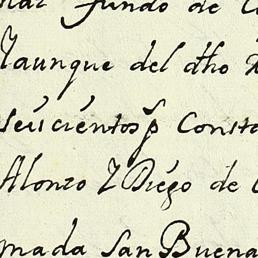 fundo de
Yaunque del dho
seiscientos p Consta
Alonzo Y Diego de
mada San Buena